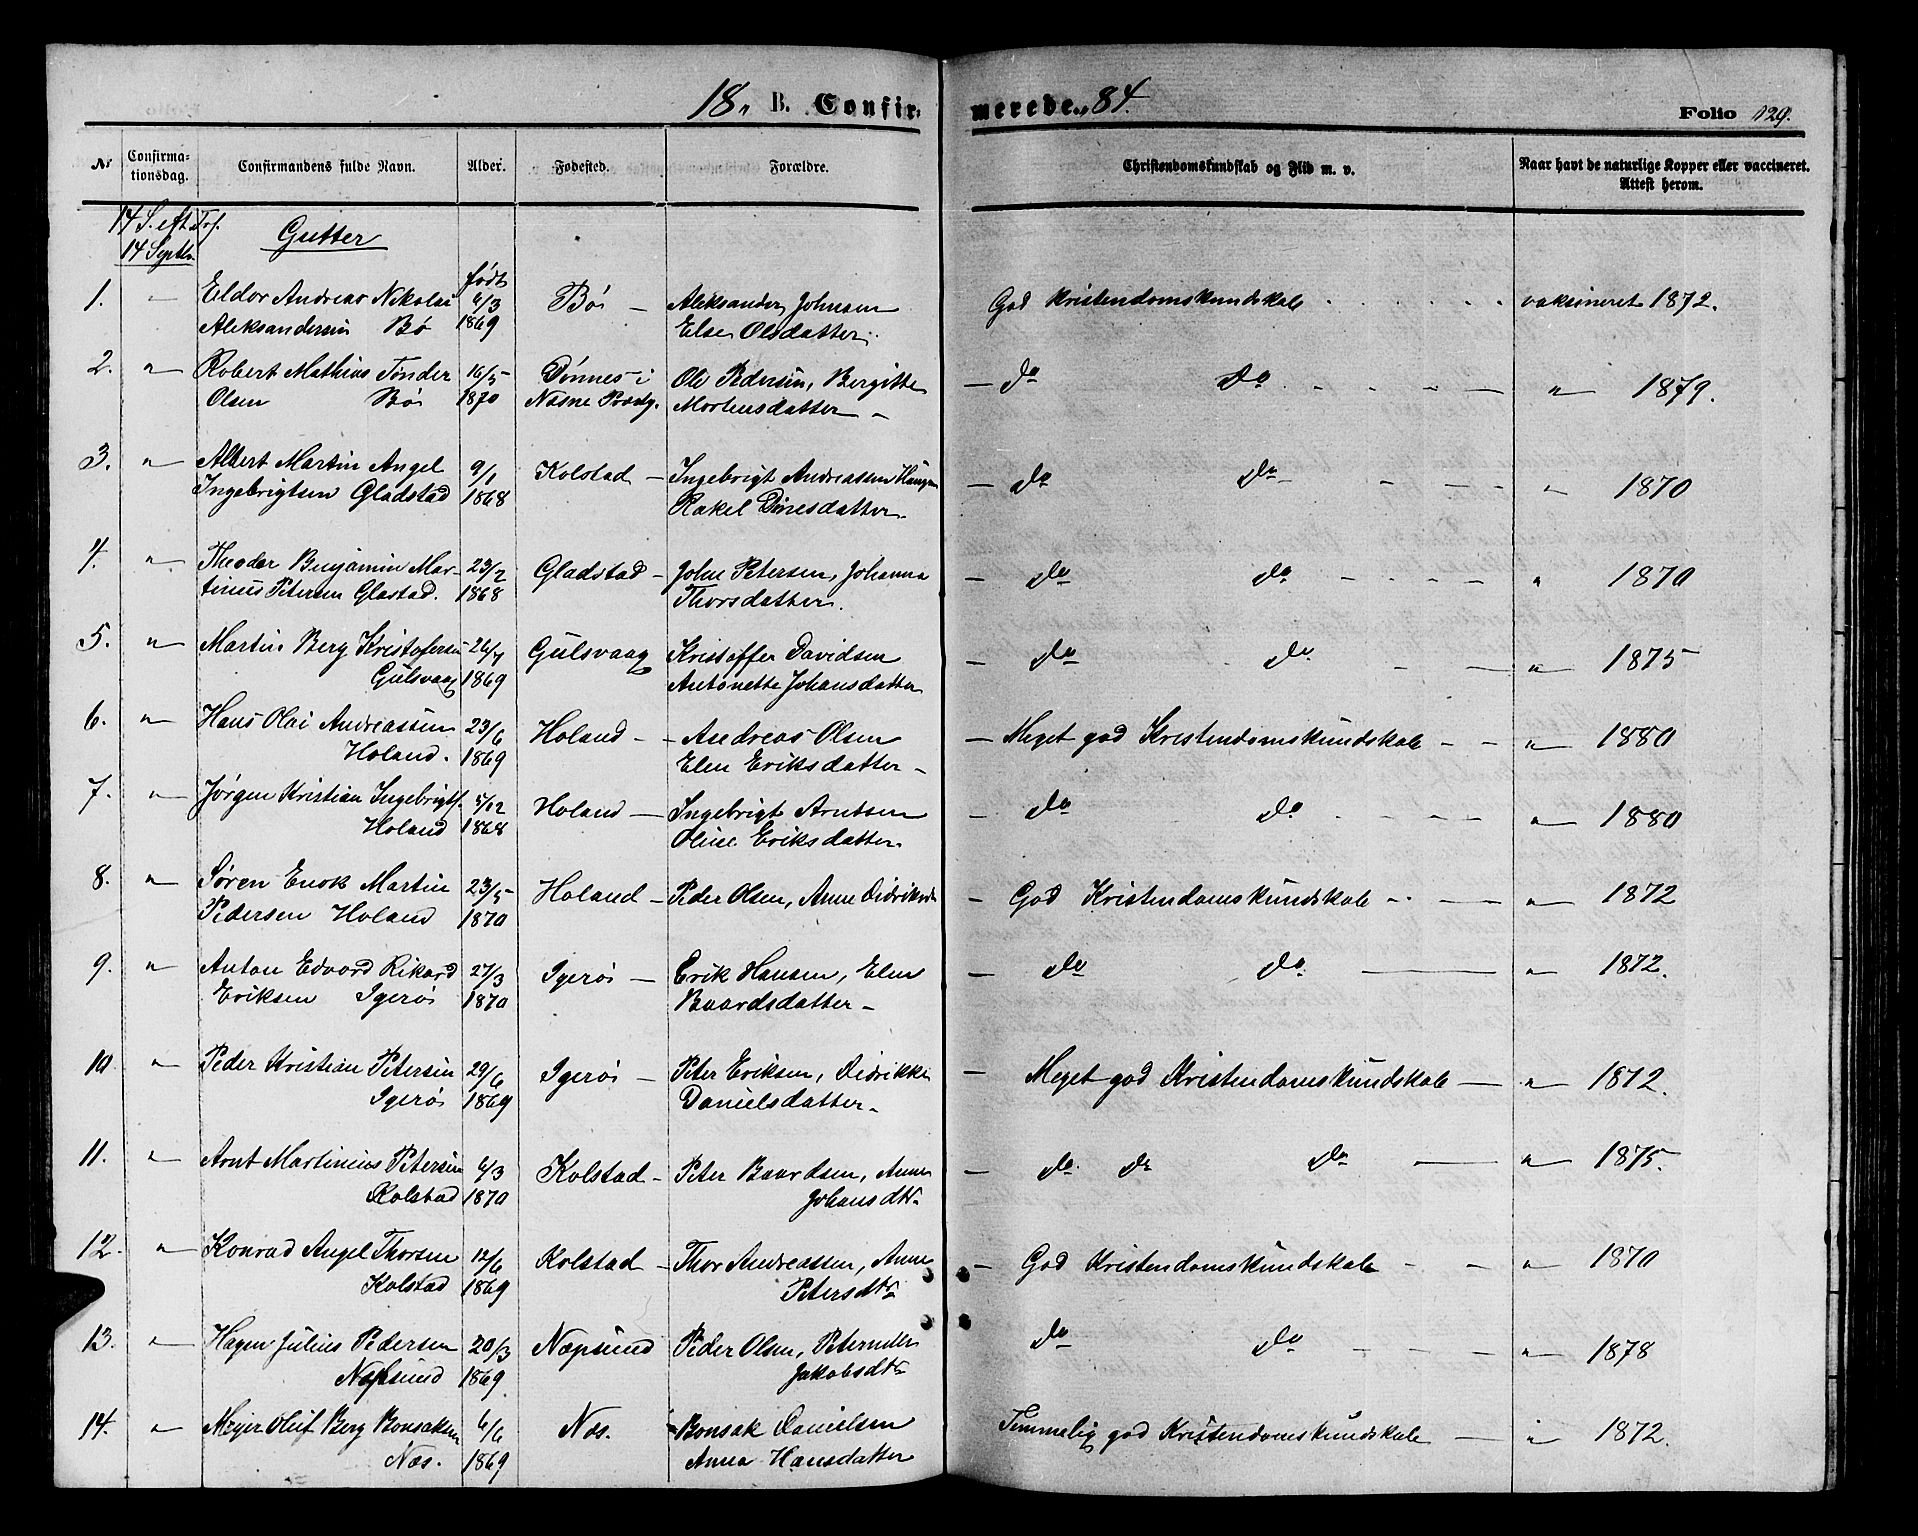 18 " B. Confirmerede. " 84.
Folio 129.
No Confirmationsdag. Confirmandens fulde Navn. Alder. Fødested. Forældre. Christendomskundskab og Flid m. v. Naar havt de naturlige Kopper eller vaccineret. Attest herom.
14 S. eft. Tref.
14 Septbr Gutter
født
1. " Eldor Andreas Nikolai 6/3 Bø – Aleksander Johnsen God Kristendomskundskab vaksineret 1872.
Aleksandersen Bø 1869 Else Olsdatter.
2. " Robert Mathias Tønder 16/5 Dønnes i Ole Pedersen, Bergitte – do do " 1879.
Olsen Bø 1870 Næsne Præstg. Mortensdatter –
3. " Albert Martin Angel 9/1 Kolstad – Ingebrigt Andreassen – do do " 1870
Ingebrigtsen Gladstad 1868 Rakel Dinesdatter.
4. " Theodor Benjamin Mar- 23/2 Gladstad – John Petersen, Johanna – do do " 1870
tinus Petersen Glastad. 1868 Thorsdatter.
5. " Martin Berg Kristofersen 26/7 Gulsvaag Kristoffer Davidsen – do do " 1875
Gulsvaag 1869 Antonette Johansdatter
6. " Hans Olai Andreassen 23/6 Holand – Andreas Olsen – Meget god Kristendomskundskab " 1880
Holand. 1869 Elen Eriksdatter –
7. " Jørgen Kristian Ingebrigts. 5/12 Holand – Ingebrigt Arntsen – do do " 1880
Holand 1868 Oline Eriksdatter.
8. " Søren Enok Martin 23/5 Holand – Peder Olsen, Anne Didriksd – God Kristendomskundskab " 1872
Pedersen Holand 1870
9. " Anton Edvard Rikard 27/3 Igerøs – Erik Hansen, Elen – do do " 1872.
Eriksen Igerøs 1870 Baardsdatter –
10 " Peder Kristian Petersen 29/6 Igerøs – Peter Eriksen, Didrikke – Meget god Kristendomskundskab " 1872.
Igerøs 1869 Danielsdatter –
11. " Arnt Martinius Petersen 6/3 Kolstad – Peter Baardsen, Anne – do. do do " 1875.
Kolstad 1870 Johansdtr
12. " Konrad Angel Thorsen 12/6 Kolstad – Thor Andreassen, Anne – God Kristendomskundskab " 1870
Kolstad 1869 Petersdtr
13. " Hagen Julius Pedersen 20/3 Næpsund Peder Olsen, Peternille do do " 1878
Næpsund 1869. Jakobsdtr
14. " Meyer Oluf Berg Bonsaksen 6/6 Næs. Bonsak Danielsen Temmelig god Kristendomskundskab " 1872.
Næs. 1869 Anna Hansdatter